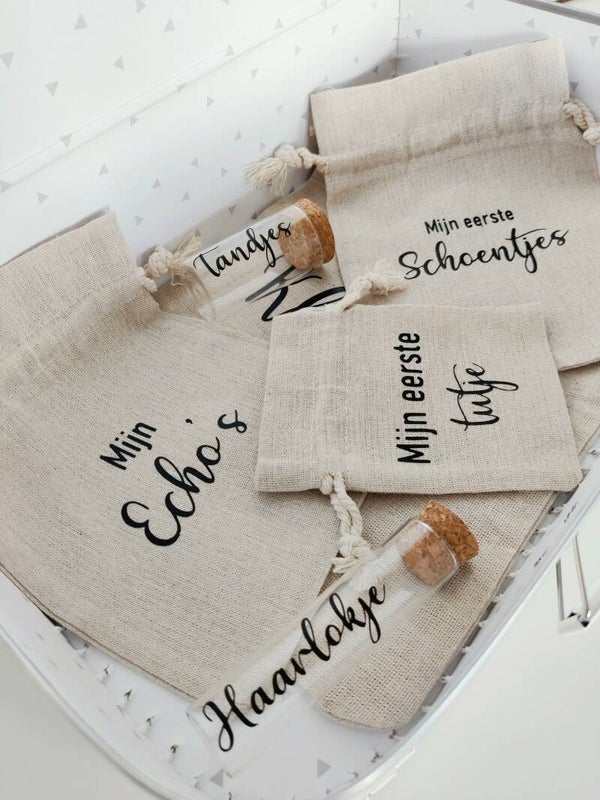 Tandjes
Mijn eerste
Schoentjes
Mijn eerste
tutje
Mijn
Echo's
Haarlokje